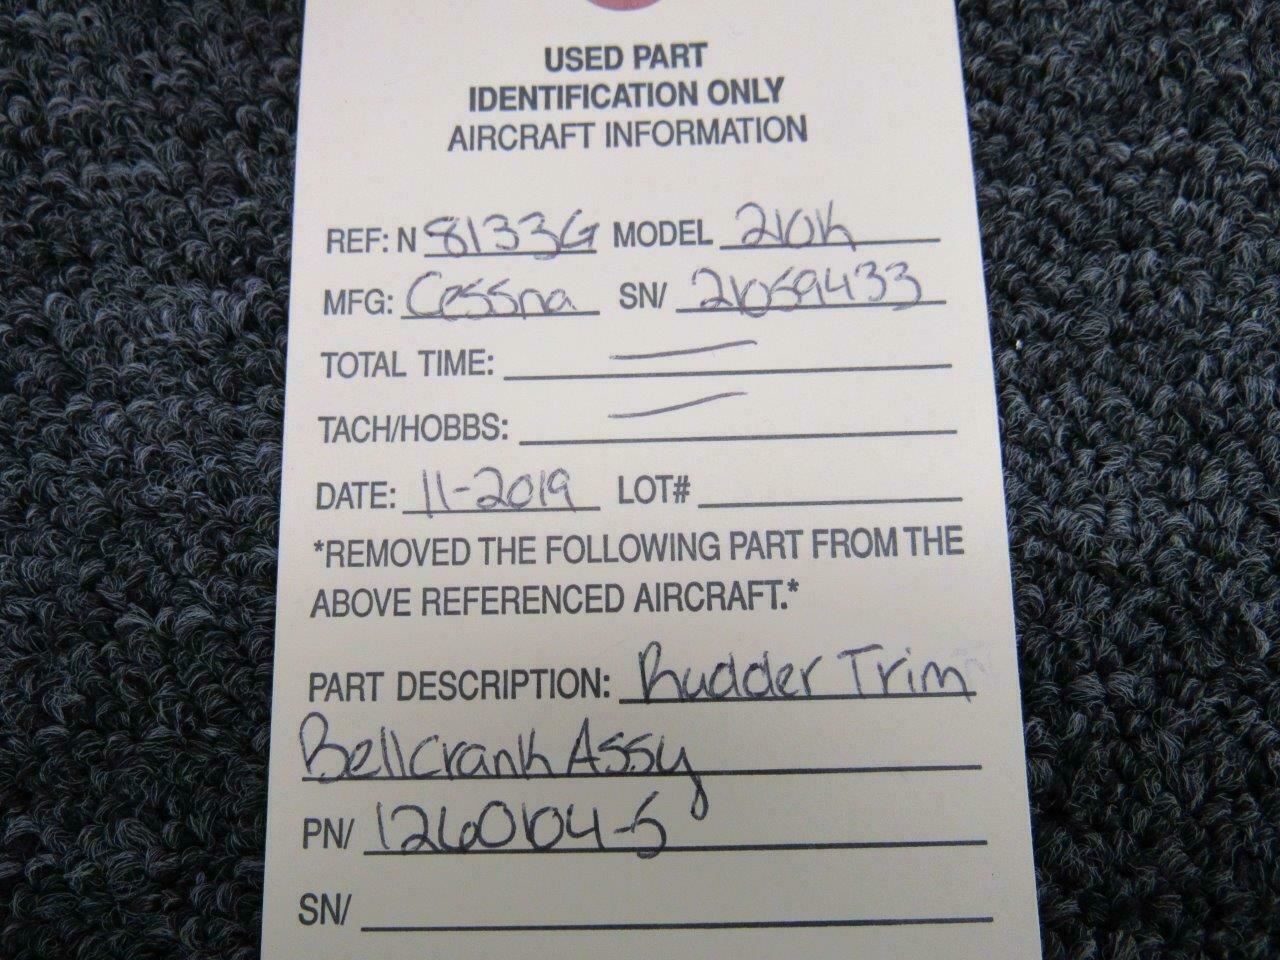 USED PART
IDENTIFICATION ONLY
AIRCRAFT INFORMATION
REF: N 8133G MODEL 210K
MFG: Cessna SN/ 21059433
TOTAL TIME: —
TACH/HOBBS: —
DATE: 11-2019 LOT#
*REMOVED THE FOLLOWING PART FROM THE
ABOVE REFERENCED AIRCRAFT.*
PART DESCRIPTION: Rudder Trim
Bellcrank Assy
PN/ 1260104-5
SN/